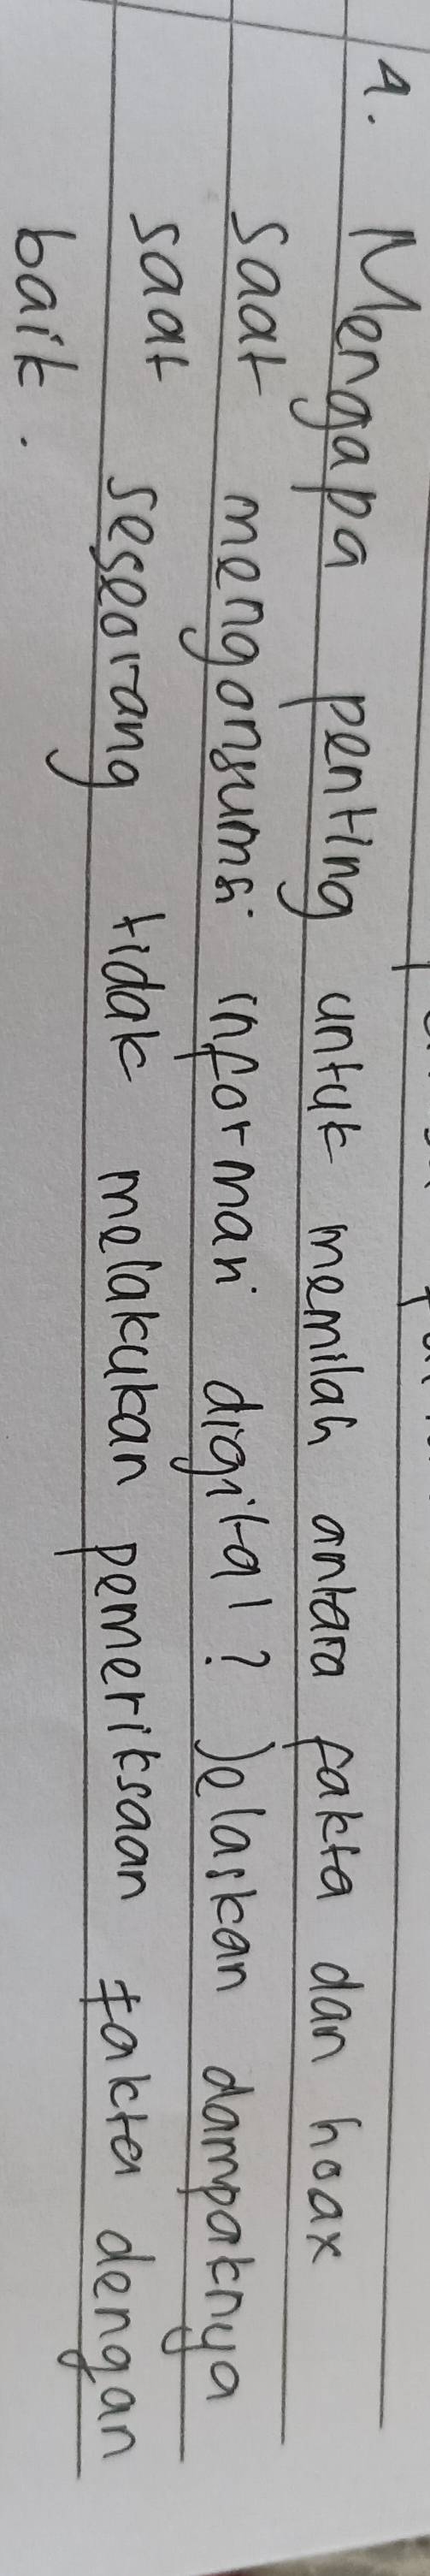 4. Mengapa penting untuk memilah antara fakta dan hoax
saat mengonsumsi informasi digital? Jelaskan dampaknya
saat seseorang tidak melakukan pemeriksaan fakta dengan
baik.